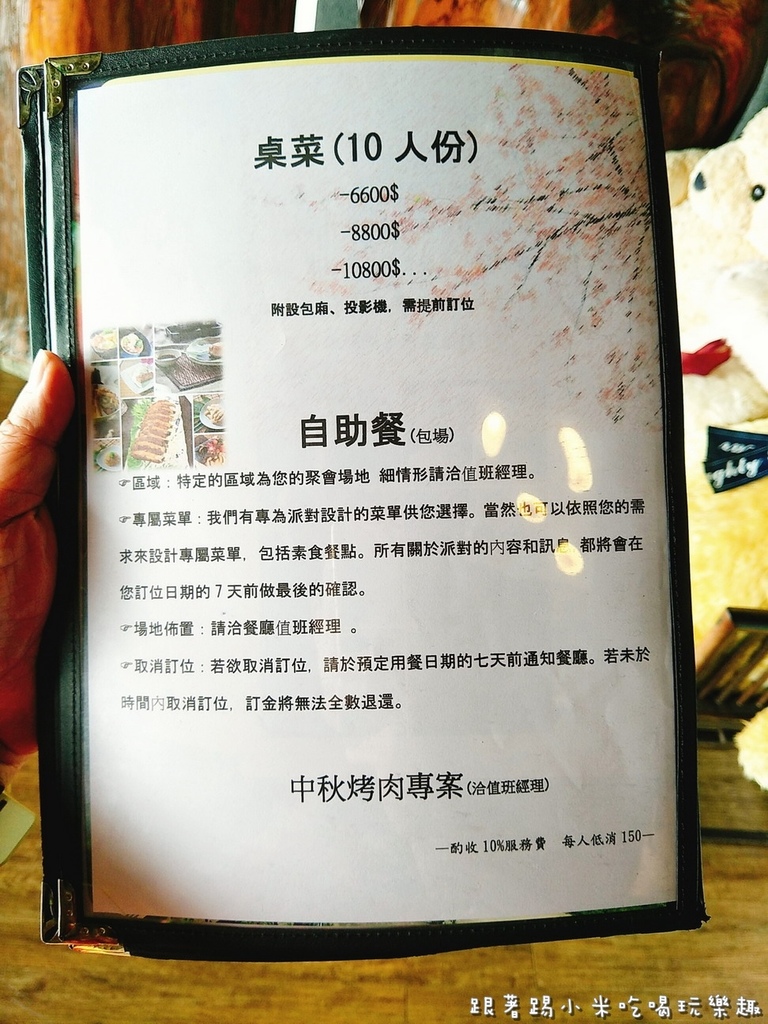 桌菜(10 人份)
-6600$
-8800$
-10800$...
附設包廂、投影機, 需提前訂位
自助餐(包場)
☞區域：特定的區域為您的聚會場地 細情形請洽值班經理。
☞專屬菜單：我們有專為派對設計的菜單供您選擇。當然也可以依照您的需
求來設計專屬菜單, 包括素食餐點。所有關於派對的內容和訊息 都將會在
您訂位日期的 7 天前做最後的確認。
☞場地佈置：請洽餐廳值班經理 。
☞取消訂位：若欲取消訂位, 請於預定用餐日期的七天前通知餐廳。若未於
時間內取消訂位, 訂金將無法全數退還。
中秋烤肉專案(洽值班經理)
—酌收 10%服務費 每人低消 150—
跟著踢小米吃喝玩樂趣